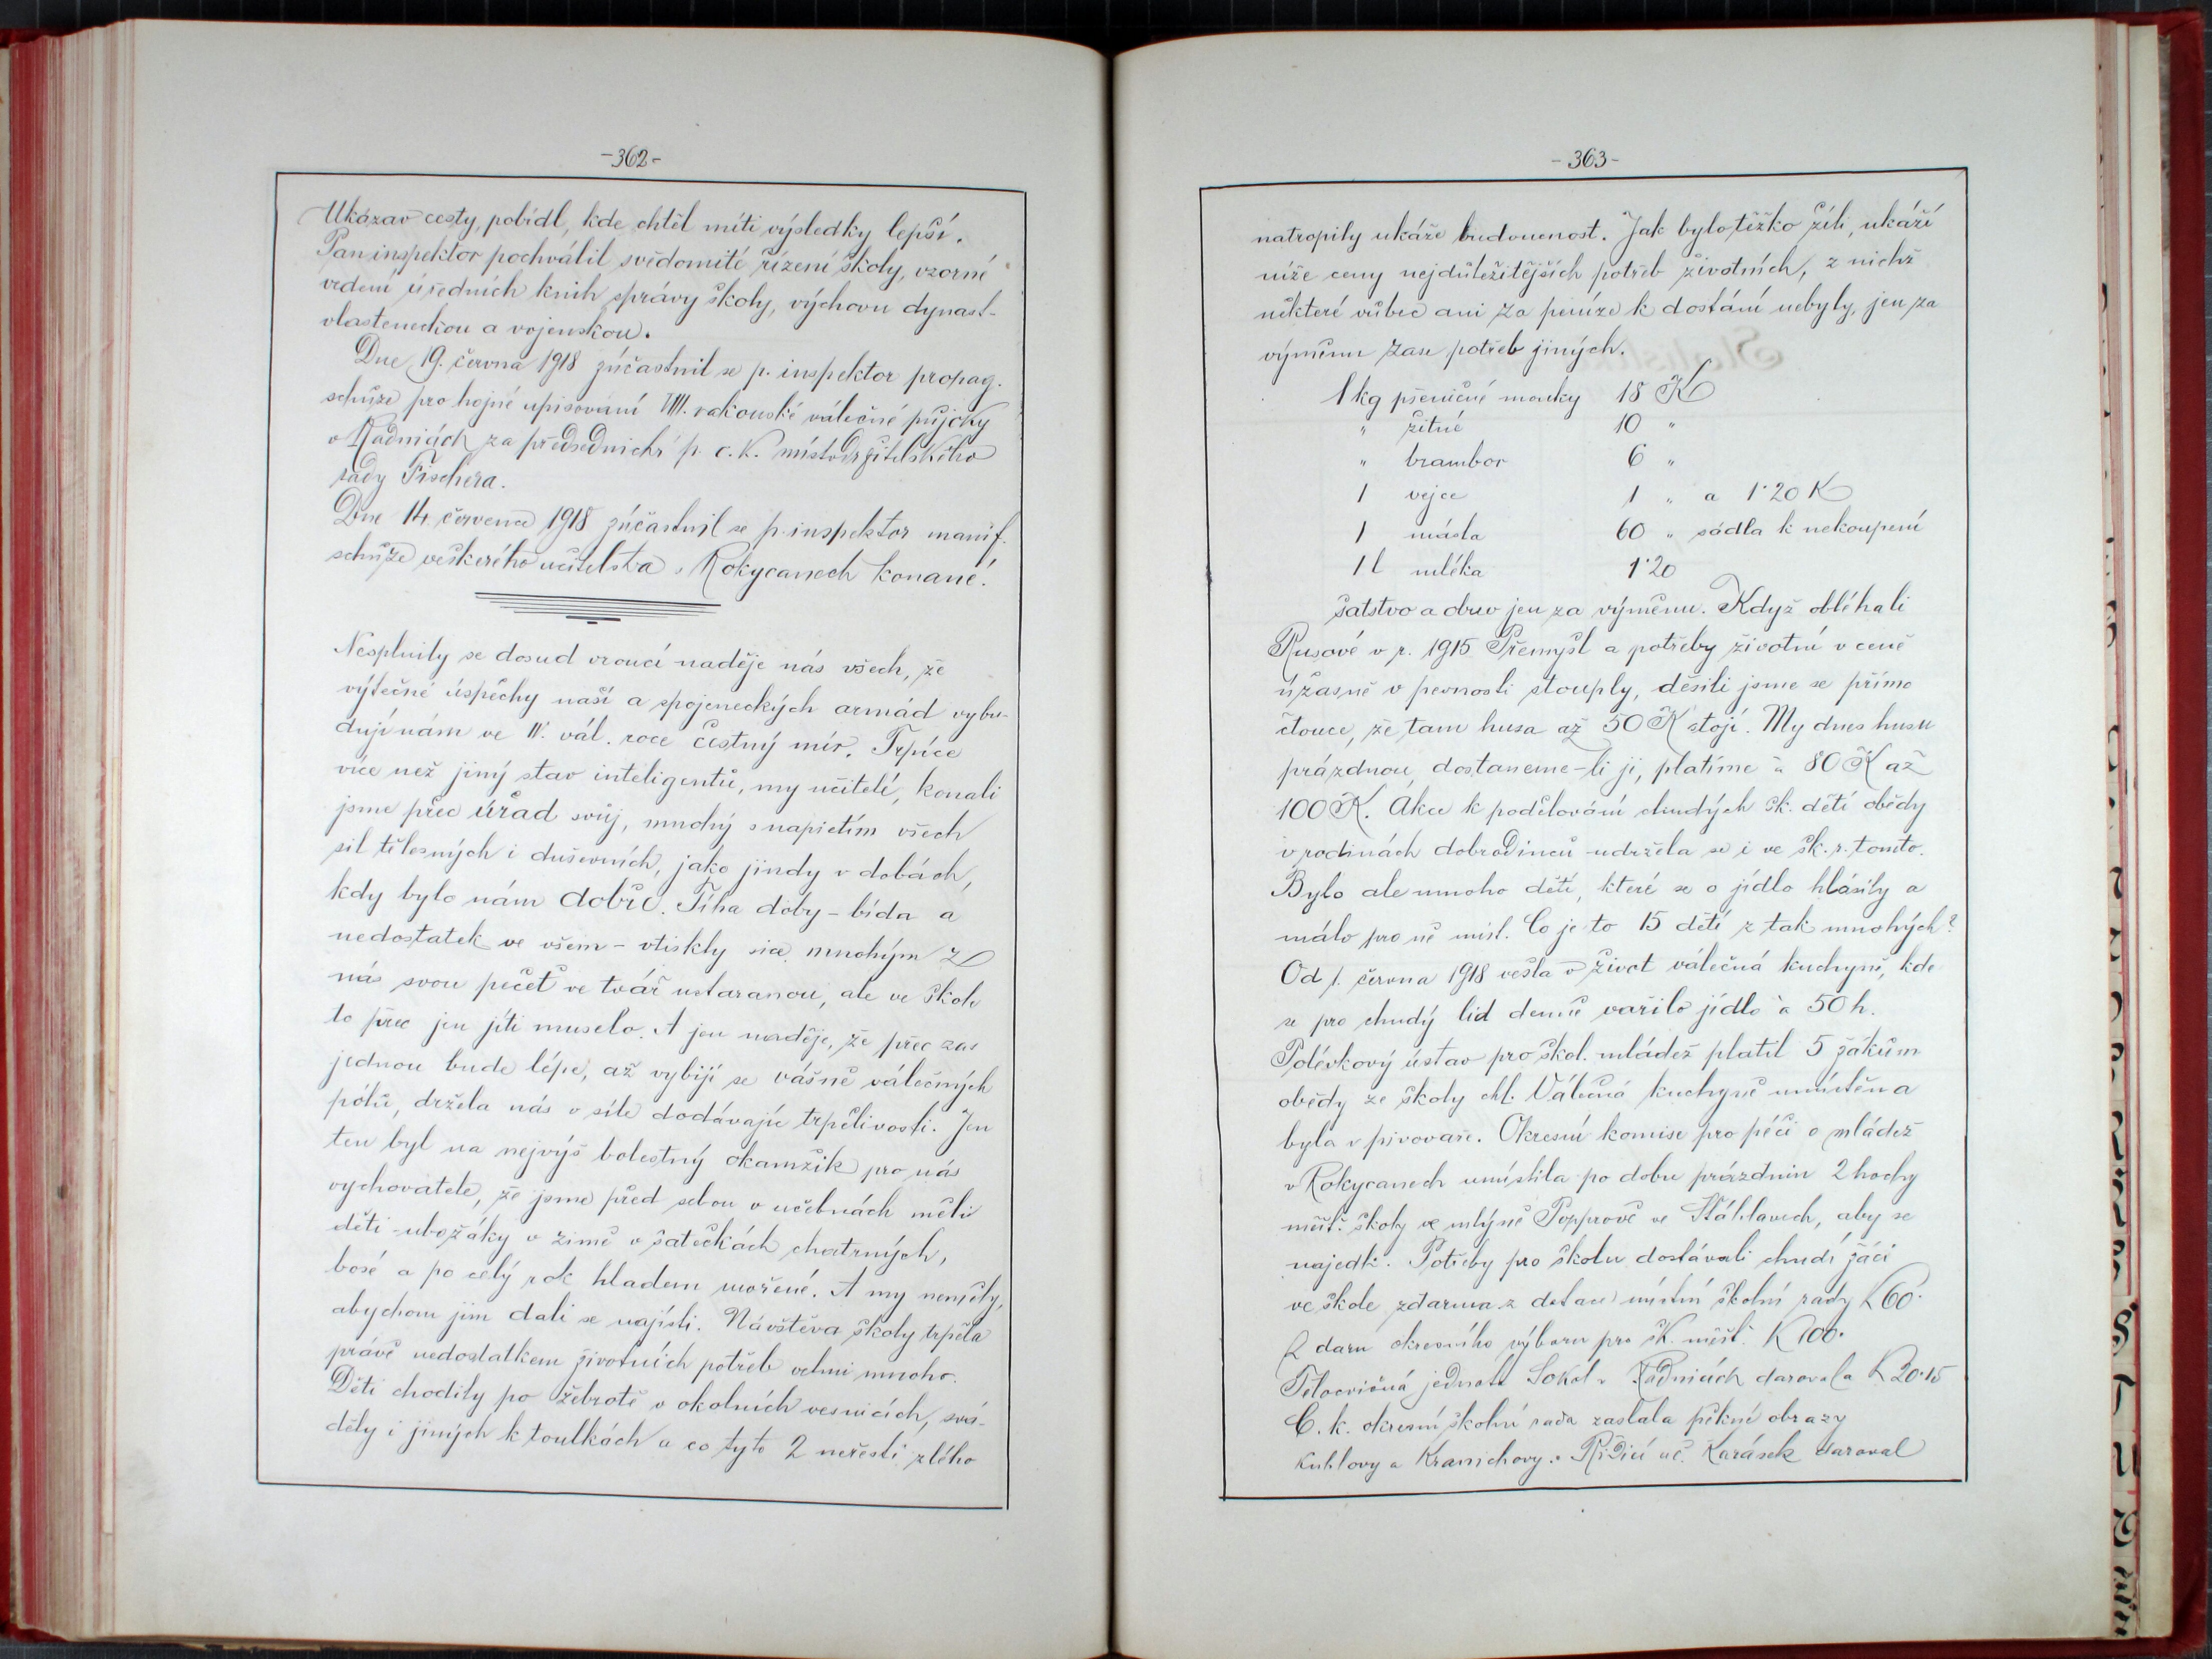 -362-
Ukázav cesty, pobídl, kde chtěl míti výsledky lepší.
Pan inspektor pochválil svědomité řízení školy, vzorné
vedení úředních knih správy školy, výchovu dynast-
vlasteneckou a vojenskou.
Dne 19. června 1918 zúčastnil se p. inspektor propag.
schůze pro hojné upisování VIII. rakouské válečné půjčky
v Radnicích za předsednictví p. c. k. místodržitelského
rady Fischera.
Dne 14. července 1918 zúčastnil se p. inspektor manif.
schůze veškerého učitelstva v Rokycanech konané.
Nesplnily se dosud vroucí naděje nás všech, že
výtečné úspěchy naší a spojeneckých armád vybu-
dují nám ve IV. vál. roce čestný mír. Trpíce
více než jiný stav inteligentů, my učitelé, konali
jsme přec úřad svůj, mnohý s napietím všech
sil tělesných i duševních, jako jindy v dobách,
kdy bylo nám dobře. Tíha doby - bída a
nedostatek ve všem - vtiskly sice mnohým z
nás svou pečeť ve tvář ustaranou, ale ve škole
to přec jen jíti muselo. A jen naděje, že přec zas
jednou bude lépe, až vybijí se vášně válečných
pólů, držela nás v síle dodávajíc trpělivosti. Jen
ten byl na nejvýš bolestný okamžik pro nás
vychovatele, že jsme před sebou v učebnách měli
děti-ubožáky v zimě v šatečkách chatrných,
bosé a po celý rok hladem mořené. A my neměly,
abychom jim dali se najísti. Návštěva školy trpěla
právě nedostatkem životních potřeb velmi mnoho.
Děti chodily po žebrotě v okolních vesnicích, svá-
děly i jiných k toulkách a co tyto 2 neřesti zlého
-363-
natropily ukáže budoucnost. Jak bylo těžko žíti, ukáží
níže ceny nejdůležitějších potřeb životních, z nichž
některé vůbec ani za peníze k dostání nebyly, jen za
výměnu zase potřeb jiných.
1 kg pšeničné mouky 18 K
" žitné 10 "
" brambor 6 "
1 vejce 1 " a 1·20 K
1 másla 60 " sádla k nekoupení
1 l mléka 1·20
Šatstvo a obuv jen za výměnu. Když obléhali
Rusové v r. 1915 Přemyšl a potřeby životní v ceně
úžasně v pevnosti stouply, děsili jsme se přímo
čtouce, že tam husa až 50 K stojí. My dnes husu
prázdnou, dostaneme-li ji, platíme à 80 K až
100 K. Akce k podělování chudých šk. dětí obědy
v rodinách dobrodinců udržela se i ve šk. r. tomto.
Bylo ale mnoho dětí, které se o jídlo hlásily a
málo pro ně míst. Co je to 15 dětí z tak mnohých?
Od 1. června 1918 vešla v život válečná kuchyně, kde
se pro chudý lid denně vařilo jídlo à 50 h.
Polévkový ústav pro škol. mládež platil 5 žákům
obědy ze školy chl. Válečná kuchyně umístěna
byla v pivovaře. Okresní komise pro péči o mládež
v Rokycanech umístila po dobu prázdnin 2 hochy
měšť. školy ve mlýně Popprově ve Šťáhlavech, aby se
najedli. Potřeby pro školu dostávali chudí žáci
ve škole zdarma z dotace místní školní rady K 60·
Z daru okresního výboru pro šk. měšť. K 100·
Tělocvičná jednota Sokol v Radnicích darovala K 20·15
C. k. okresní školní rada zaslala pěkné obrazy
Kuhlovy a Kranichovy. Řídící uč. Karásek daroval